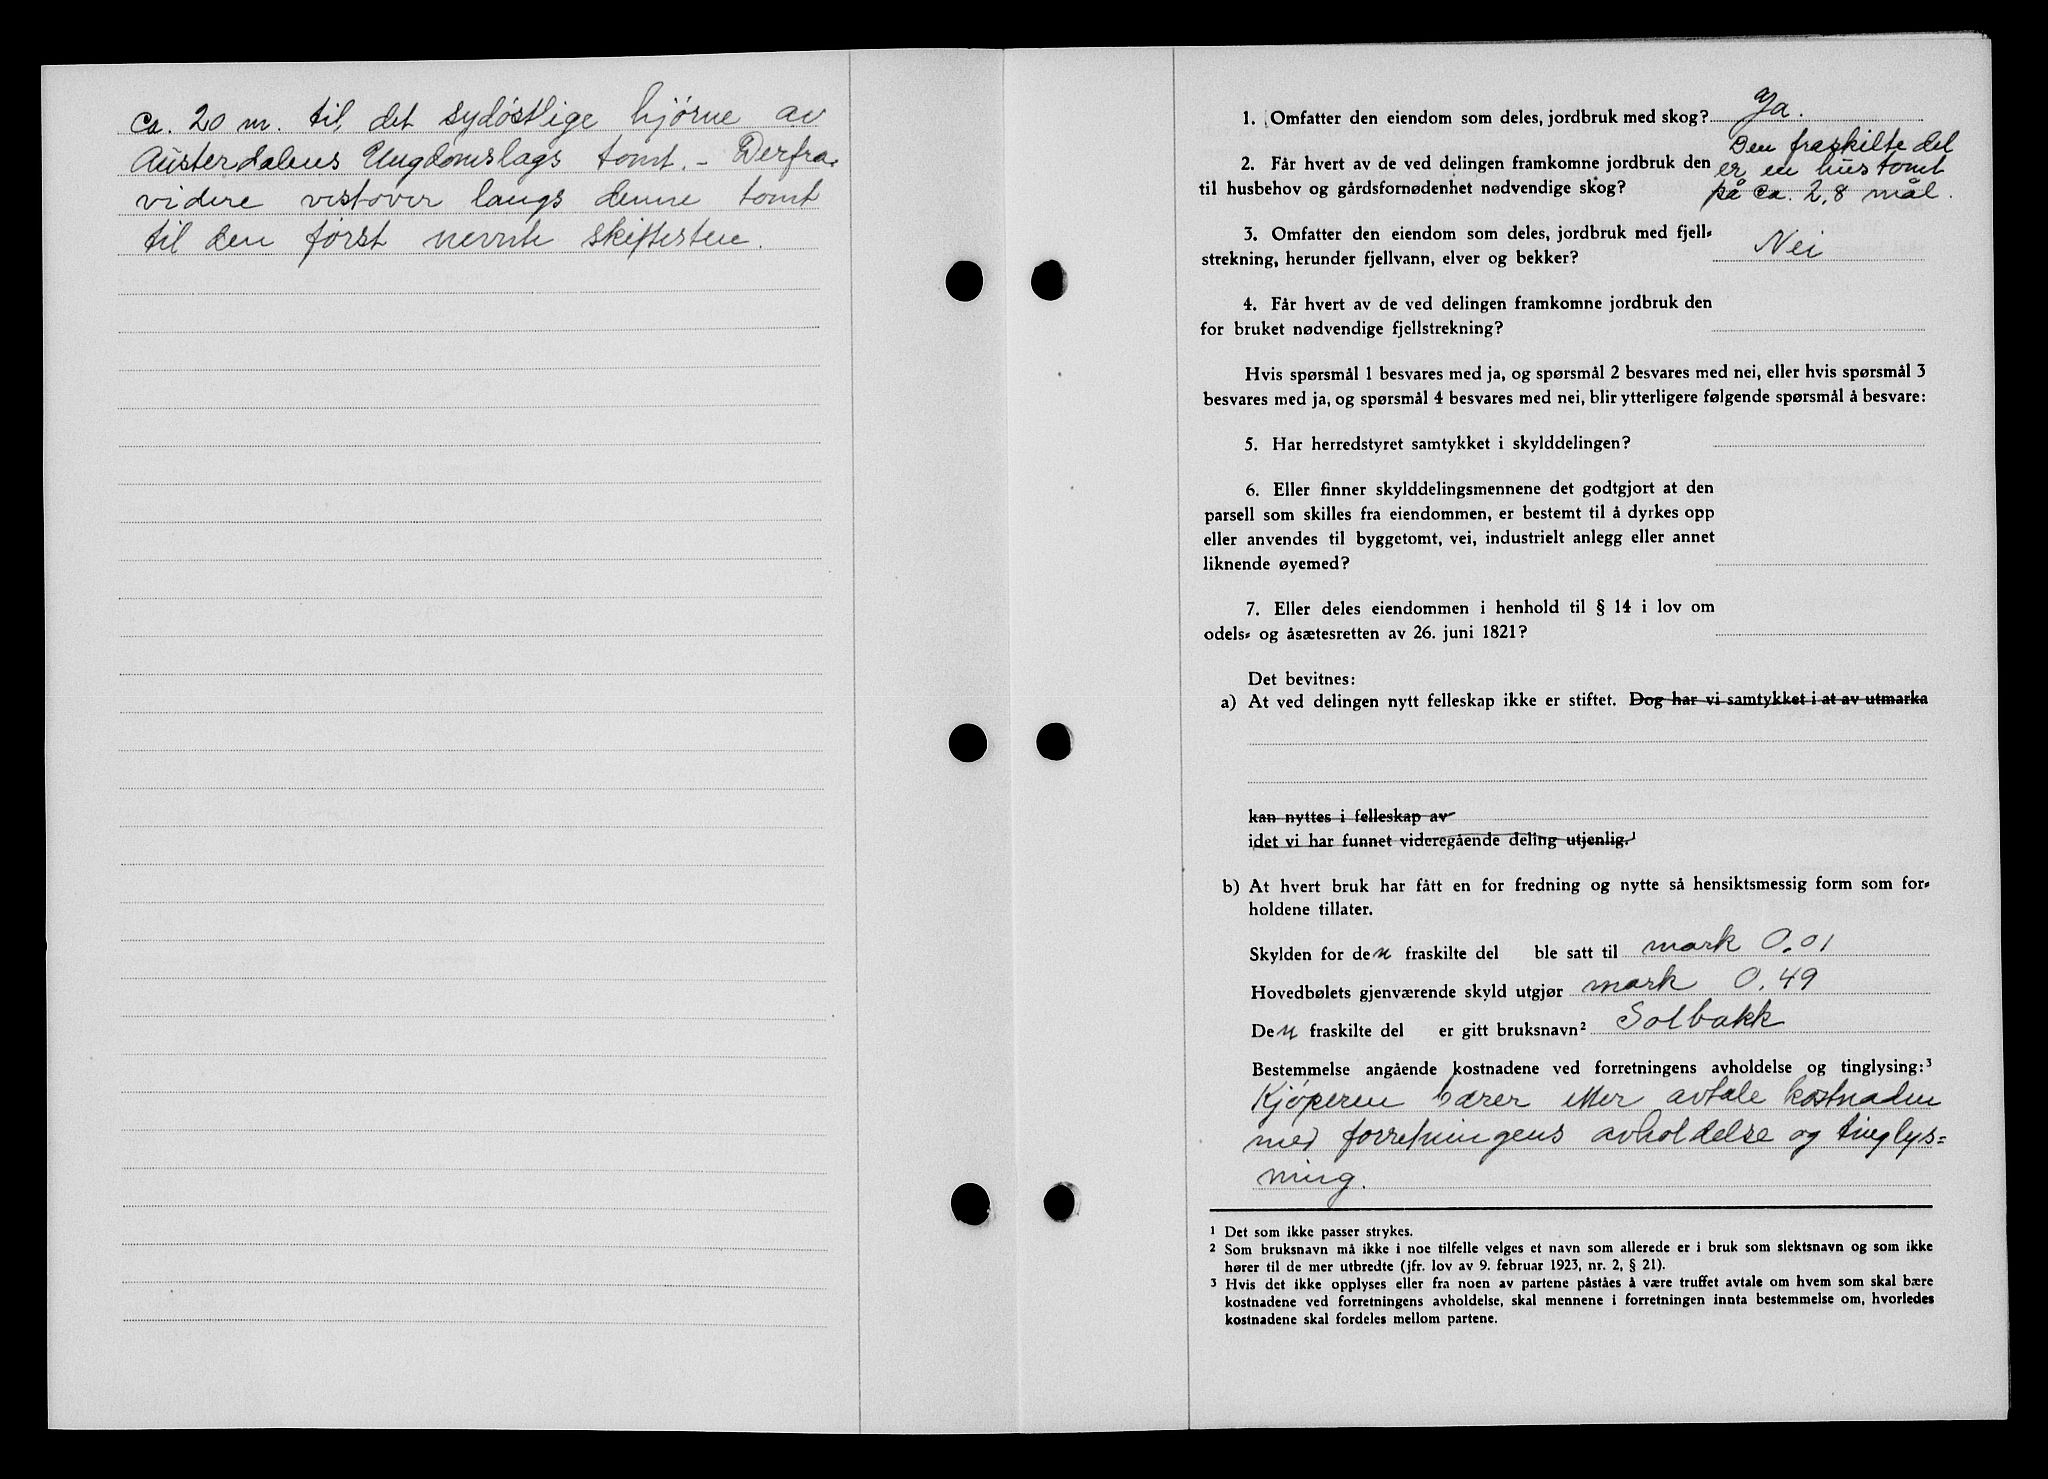 ca. 20 m. til det sydøstlige hjørne av
Austerdalens Ungdomslags tomt. - Derfra
videre vestover langs denne tomt
til den først nevnte skiftesten.
1. Omfatter den eiendom som deles, jordbruk med skog? Ja.
2. Får hvert av de ved delingen framkomne jordbruk den
til husbehov og gårdsfornødenhet nødvendige skog?
Den fraskilte del
er en hustomt
på ca. 2,8 mål.
3. Omfatter den eiendom som deles, jordbruk med fjell-
strekning, herunder fjellvann, elver og bekker? Nei
4. Får hvert av de ved delingen framkomne jordbruk den
for bruket nødvendige fjellstrekning?
Hvis spørsmål 1 besvares med ja, og spørsmål 2 besvares med nei, eller hvis spørsmål 3
besvares med ja, og spørsmål 4 besvares med nei, blir ytterligere følgende spørsmål å besvare:
5. Har herredstyret samtykket i skylddelingen?
6. Eller finner skylddelingsmennene det godtgjort at den
parsell som skilles fra eiendommen, er bestemt til å dyrkes opp
eller anvendes til byggetomt, vei, industrielt anlegg eller annet
liknende øyemed?
7. Eller deles eiendommen i henhold til § 14 i lov om
odels- og åsætesretten av 26. juni 1821?
Det bevitnes:
a) At ved delingen nytt felleskap ikke er stiftet. Dog har vi samtykket i at av utmarka
kan nyttes i felleskap av
idet vi har funnet videregående deling utjenlig.¹
b) At hvert bruk har fått en for fredning og nytte så hensiktsmessig form som for-
holdene tillater.
Skylden for den fraskilte del ble satt til mark 0.01
Hovedbølets gjenværende skyld utgjør mark 0.49
Den fraskilte del er gitt bruksnavn² Solbakk
Bestemmelse angående kostnadene ved forretningens avholdelse og tinglysing:³
Kjøperen bærer etter avtale kostnaden
med forretningens avholdelse og tinglys=
ning.
¹ Det som ikke passer strykes.
² Som bruksnavn må ikke i noe tilfelle velges et navn som allerede er i bruk som slektsnavn og som ikke
hører til de mer utbredte (jfr. lov av 9. februar 1923, nr. 2, § 21).
³ Hvis det ikke opplyses eller fra noen av partene påståes å være truffet avtale om hvem som skal bære
kostnadene ved forretningens avholdelse, skal mennene i forretningen innta bestemmelse om, hvorledes
kostnadene skal fordeles mellom partene.